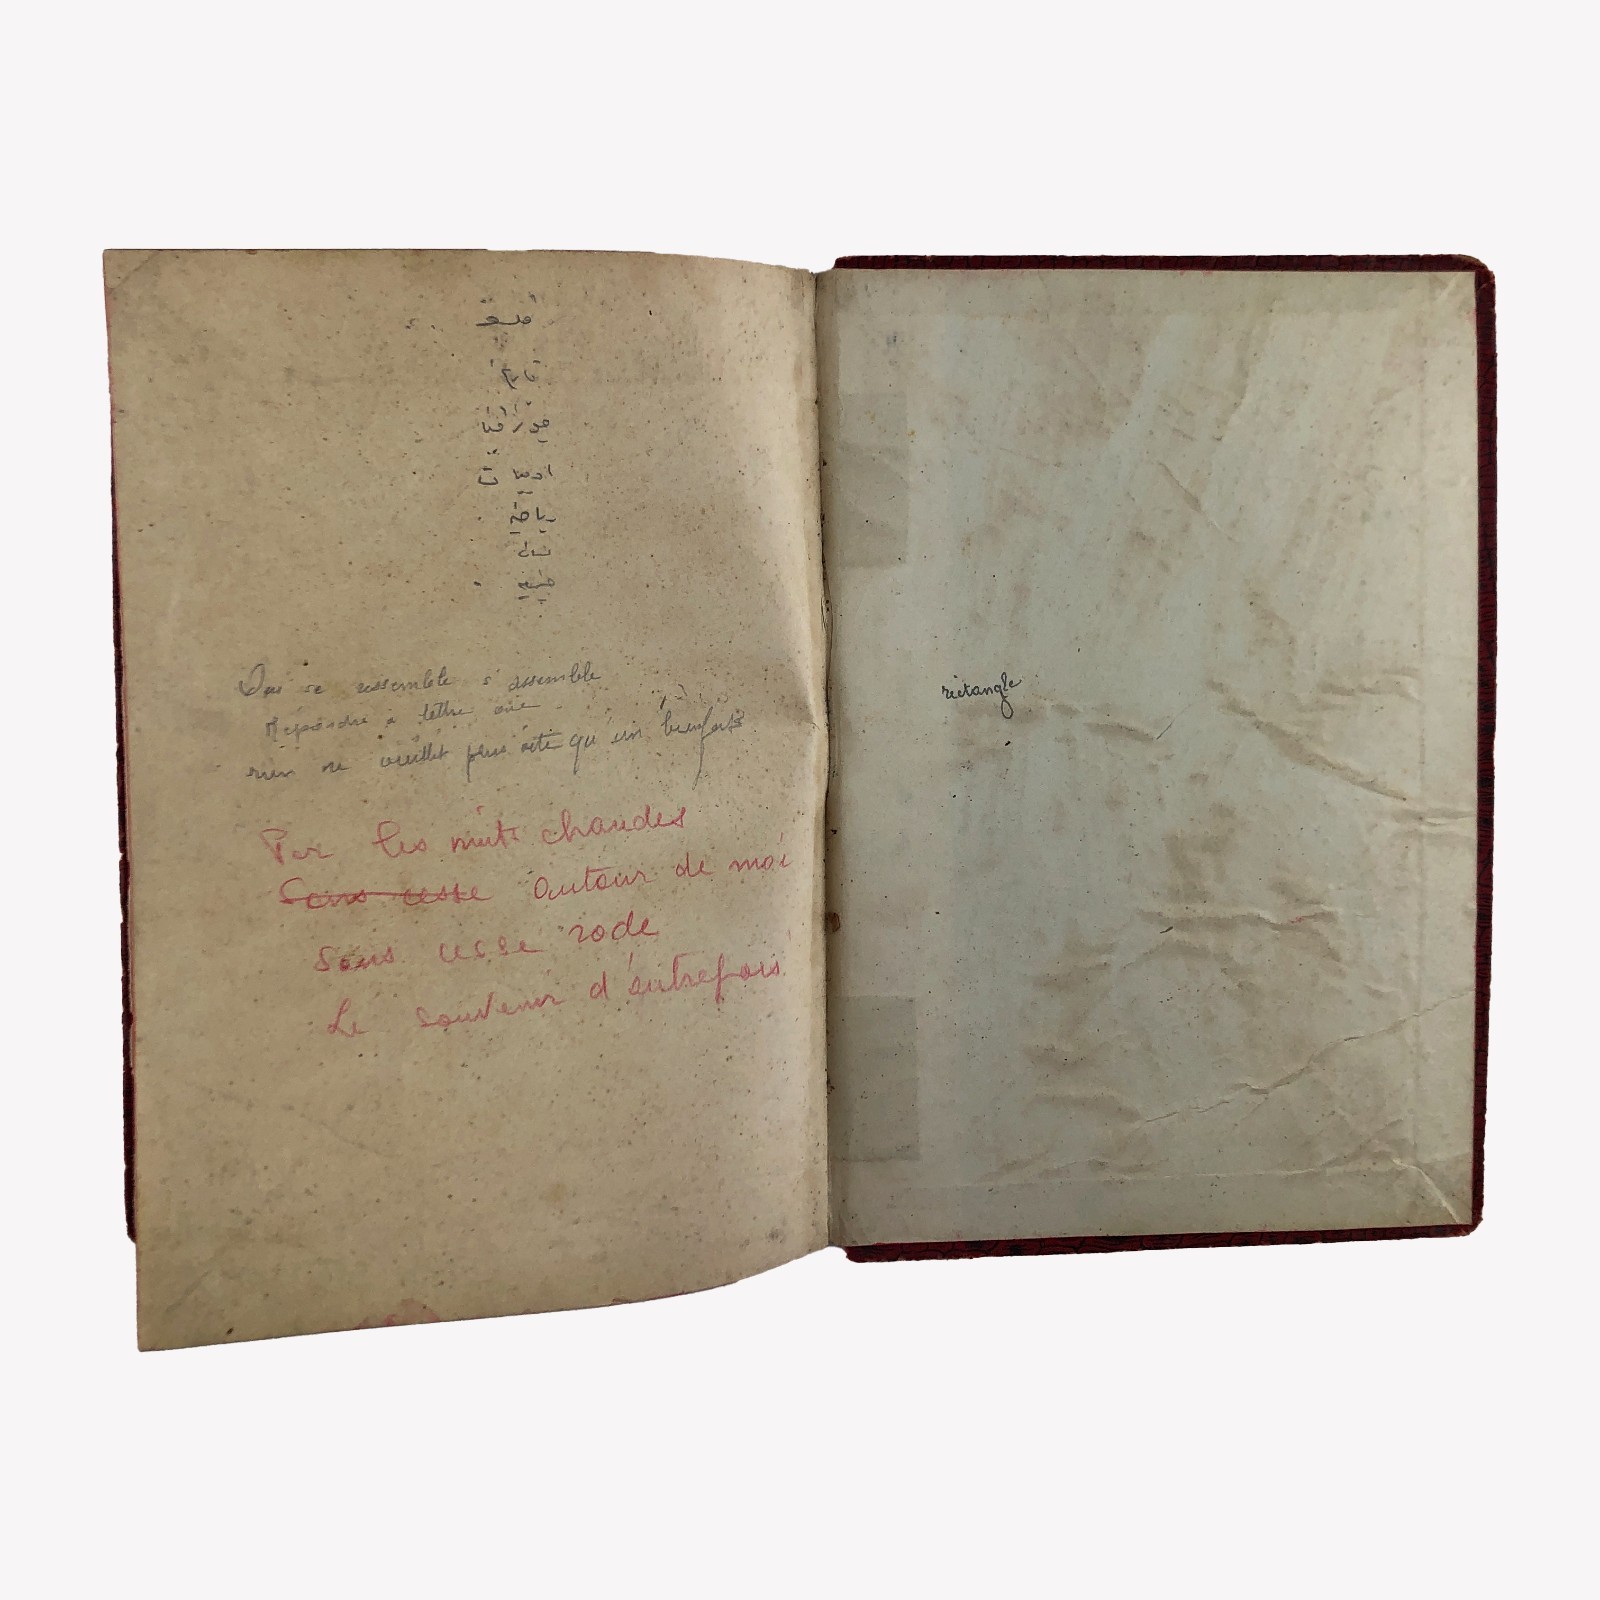 جغرافيا
ادبيات
رياضة
Qui se ressemble s'assemble
Répondre à lettre
rien ne vieillit plus vite qu'un bienfait
Par les nuits chaudes
Sans cesse autour de moi
Sans cesse rode
Le souvenir d'autrefois
rectangle